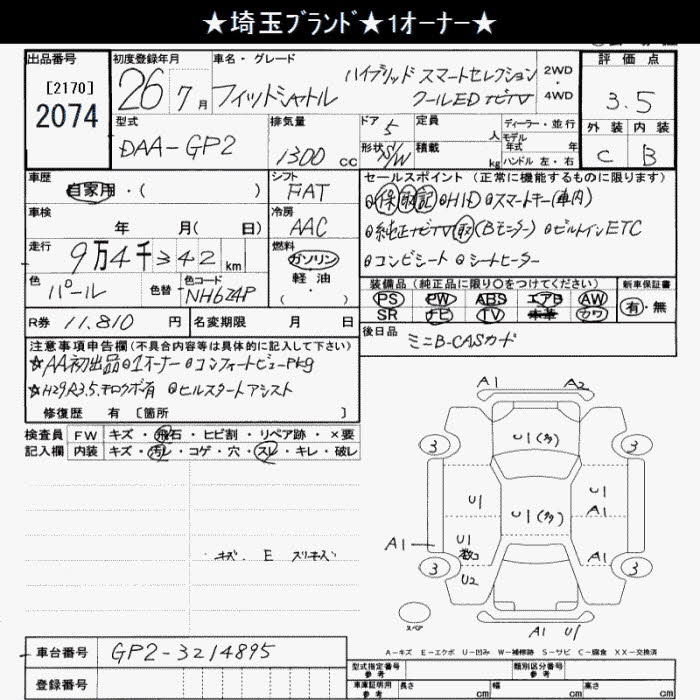 ★埼玉ブランド★1オーナー★
出品番号
[2170]
2074
初度登録年月
26年 7月
車名・グレード
フィットシャトル
ハイブリッド スマートセレクション
クールED ナビTV
2WD
4WD
評価点
3.5
外装 内装
C B
型式
DAA-GP2
排気量
1300 cc
ドア 5
形状 S/W
定員 人
積載 kg
ディーラー・並行
モデル
年式 年
ハンドル 左・右
車歴
自家用・( )
シフト
FAT
車検
年 月( 日)
冷房
AAC
走行
9万4千342 km
燃料
ガソリン
軽油
( ・ )
色
パール
色替
色コード
NH624P
R券 11,810 円
名変期限 月 日
セールスポイント(正常に機能するものに限ります)
◎保取記◎HID◎スマートキー(車内)
◎純正ナビTV取(Bモニター)◎ビルトインETC
◎コンビシート◎シートヒーター
装備品(純正品に限り○をつけてください)
新車保証書
PS PW ABS エアB AW
SR ナビ TV 本革 カワ
有・無
後日品
ミニB-CASカード
注意事項申告欄(不具合内容等は具体的に記入して下さい)
☆AA初出品◎1オーナー◎コンフォートビューPkg
☆H29,R3,5,キロクボ有 ◎ヒルスタートアシスト
修復歴 有 [箇所 ]
検査員 FW キズ・飛石・ヒビ割・リペア跡・×要
記入欄 内装 キズ・汚レ・コゲ・穴・スレ・キレ・破レ
キズ. E スリキズ
A1 A2
3 3
U1(多)
U1 U1
A1
U1(多)
A1 U1 A1
数コ
3 U2 3
スペア
A1 U1
A-キズ E-エクボ U-凹み W-補修跡 S-サビ C-腐食 XX-交換済
車台番号 GP2-3214895
登録番号
型式指定番号
参考
類別区分番号
参考
車庫証明用
参考
長さ cm 幅 cm 高さ cm